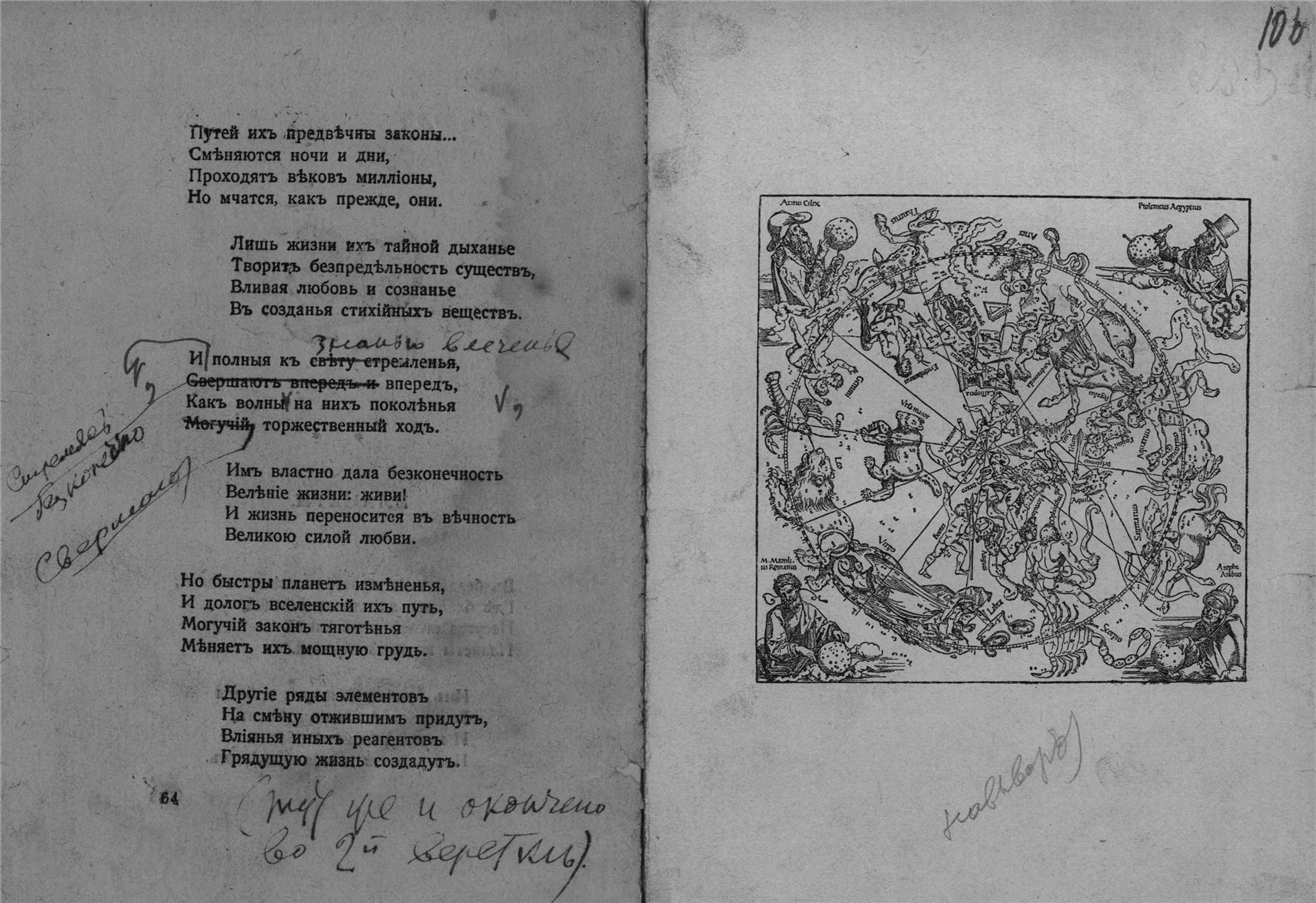 Путей ихъ предвѣчны законы...
Смѣняются ночи и дни,
Проходятъ вѣковъ милліоны,
Но мчатся, какъ прежде, они.
Лишь жизни ихъ тайной дыханье
Творитъ безпредѣльность существъ,
Вливая любовь и сознанье
Въ созданья стихійныхъ веществъ.
знанью влеченья
И полныя къ свѣту стремленья,
Свершаютъ впередъ и впередъ,
Какъ волны на нихъ поколѣнья
Могучій, торжественный ходъ.
Свершаютъ
Имъ властно дала безконечность
Велѣніе жизни: живи!
И жизнь переносится въ вѣчность
Великою силой любви.
Но быстры планетъ измѣненья,
И дологъ вселенскій ихъ путь,
Могучій законъ тяготѣнья
Мѣняетъ ихъ мощную грудь.
Другіе ряды элементовъ
На смѣну отжившимъ придутъ,
Вліянья иныхъ реагентовъ
Грядущую жизнь создадутъ.
64
и окончено
во 2й верстки).
106
Aratus Cilix
Ptolemeus Aegyptus
Virgo
Libra
Scorpio
M. Mamli-
us Romanus
Azophi
Arabus